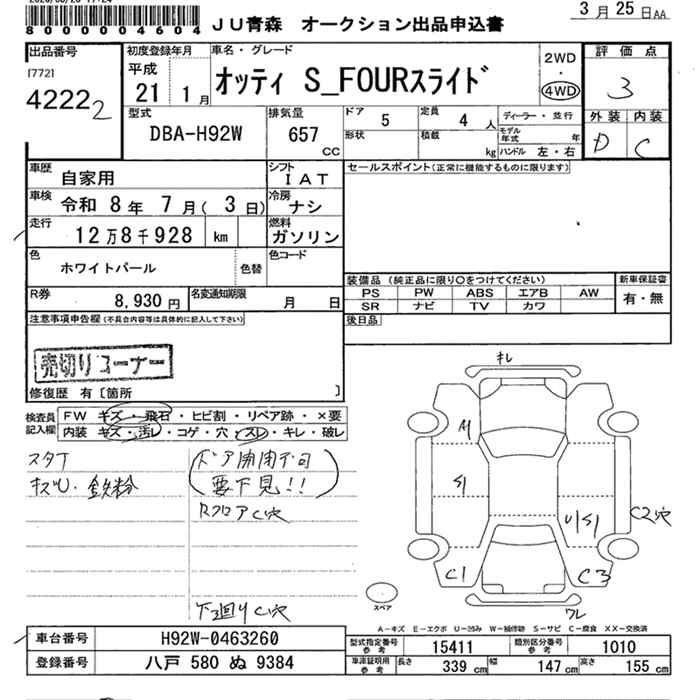 8000004604 JU青森 オークション出品申込書 3月25日AA
出品番号
[772]
42222
初度登録年月
平成
21 1月
車名・グレード
オッティ S_FOURスライド
2WD
・
4WD
評価点
3
外装 内装
D C
型式
DBA-H92W
排気量
657 CC
ドア 5
定員 4人
ディーラー・並行
形状
積載 kg
モデル年式 年
ハンドル 左・右
車歴 自家用
シフト IAT
車検 令和 8年 7月(3日)
冷房 ナシ
走行 12万8千928 km
燃料 ガソリン
色 ホワイトパール
色替
色コード
R券 8,930円
名変通知期限 月 日
セールスポイント(正常に機能するものに限ります)
装備品(純正品に限り○をつけてください)
新車保証書
PS PW ABS エアB AW
SR ナビ TV カワ
有・無
後日品
注意事項申告欄(不具合内容等は具体的に記入して下さい)
売切りコーナー
修復歴 有〔箇所 〕
検査員記入欄
FW キズ・飛石・ヒビ割・リペア跡・×要
内装 キズ・汚レ・コゲ・穴・スレ・キレ・破レ
スタT
キズU・鉄粉
(ドア開閉不可
要下見!!)
RフロアC穴
下廻りC穴
キレ
S1
U1S1
C2穴
C1
C3
ワレ
スペア
A-キズ E-エクボ U-凹み W-補修跡 S-サビ C-腐食 XX-交換済
車台番号 H92W-0463260
登録番号 八戸 580 ぬ 9384
型式指定番号 参考 15411
類別区分番号 参考 1010
車庫証明用 参考 長さ 339 cm 幅 147 cm 高さ 155 cm